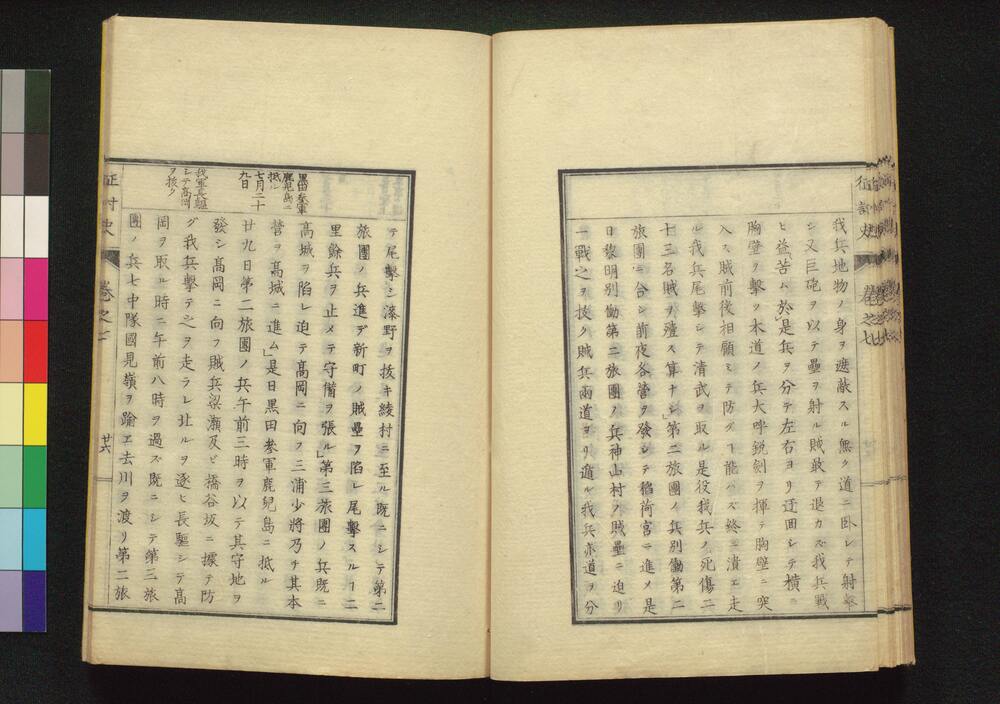 征討史 卷之七
我兵地物ノ身ヲ遮敝スル無ク道ニ卧レテ射擊
シ又巨砲ヲ以テ壘ヲ射ル賊敢テ退カズ我兵戰
ヒ益苦ム於是兵ヲ分テ左右ヨリ迂囬シテ橫ニ
胸壁ヲ擊ツ本道ノ兵大呼銳剣ヲ揮テ胸壁ニ突
入ス賊前後相顧ミテ防グヿ能ハズ終ニ潰エ走
ル我兵尾擊シテ清武ヲ取ル是役我兵ノ死傷二
十三名賊ヲ殪ス算ナシ」第二旅團ノ兵別働第二
旅團ニ合シ前夜各營ヲ發シテ稻荷宮ニ進メ是
日黎明別働第二旅團ノ兵神山村ノ賊壘ニ迫リ
一戰之ヲ抜ク賊兵兩道ヨリ遁ル我兵亦道ヲ分
テ尾擊シ漆野ヲ抜キ綾村ニ至ル既ニシテ第二
旅團ノ兵進デ新町ノ賊壘ヲ陷レ尾擊スルヿ二
里餘兵ヲ止メテ守僃ヲ張ル」第三旅團ノ兵既ニ
高城ヲ陷レ迫テ高岡ニ向フ三浦少將乃チ其本
營ヲ高城ニ進ム」是日黑田参軍鹿兒島ニ抵ル
黑田参軍
鹿兒島ニ
抵ル
廿九日第二旅團ノ兵午前三時ヲ以テ其守地ヲ
七月二十
九日
發シ高岡ニ向フ賊兵梁瀬及ビ橋谷坂ニ據テ防
グ我兵擊テ之ヲ走ラレ北ルヲ逐ヒ長驅シテ高
我軍長驅
シテ高岡
ヲ抜ク
岡ヲ取ル時ニ午前八時ヲ過ズ既ニシテ第三旅
團ノ兵七中隊國見嶺ヲ踰エ去川ヲ渡リ第二旅
征討史 卷之七 廿六